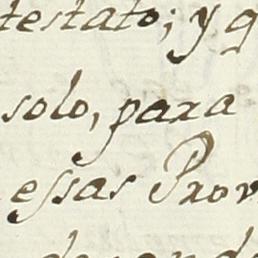 testato; y q
solo, para
essas Prov